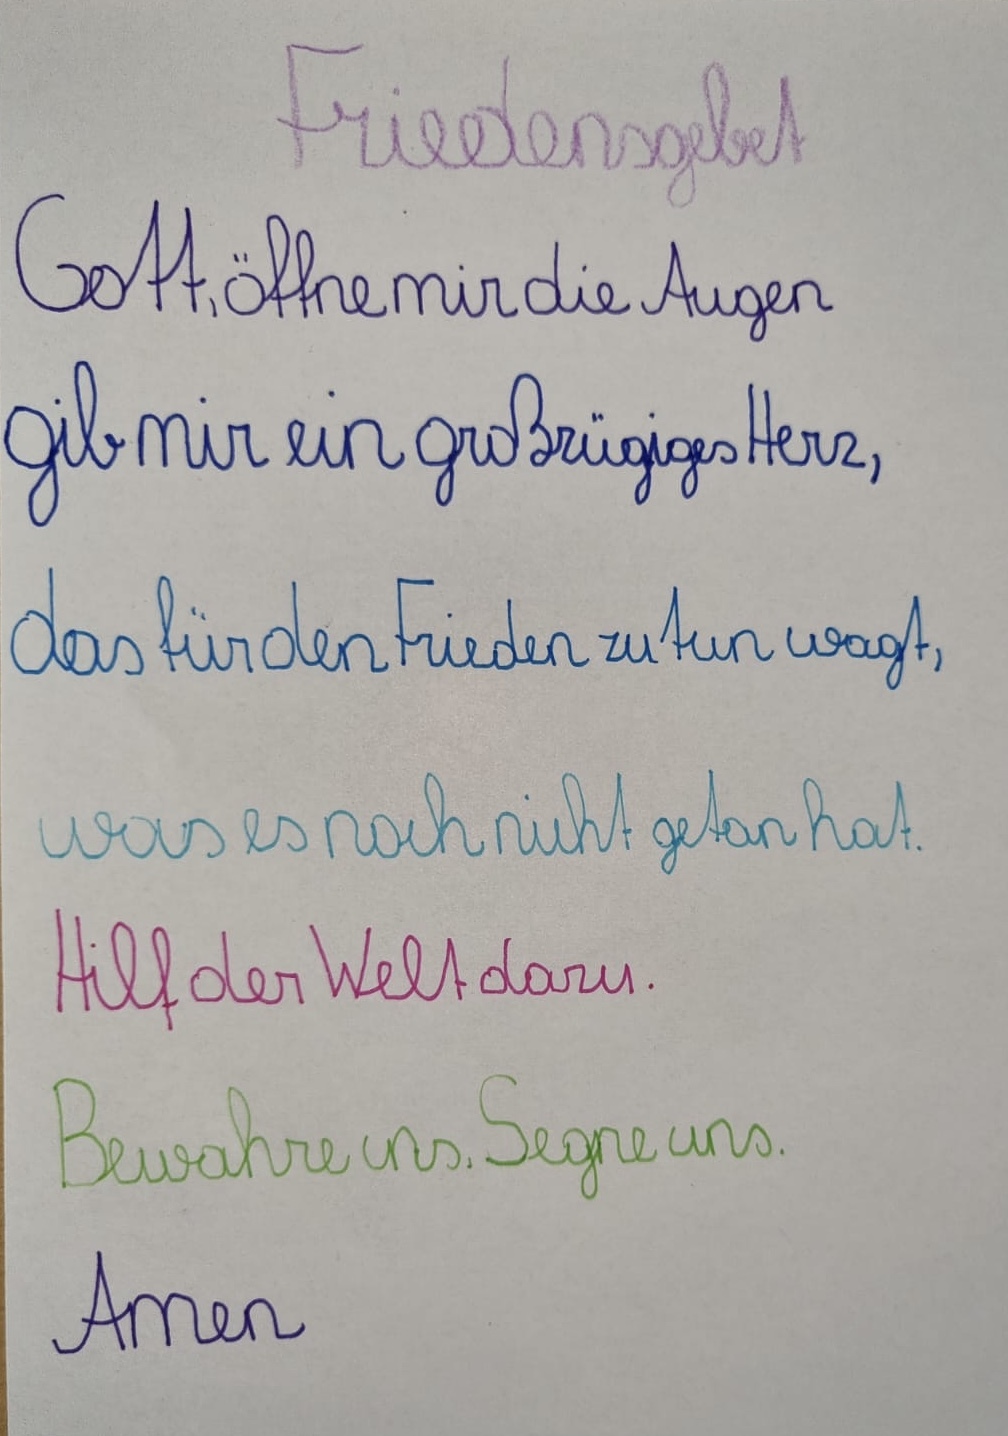 Friedensgebet
Gott, öffne mir die Augen
gib mir ein großzügiges Herz,
das für den Frieden zu tun wagt,
was es noch nicht getan hat.
Hilf der Welt dazu.
Bewahre uns. Segne uns.
Amen